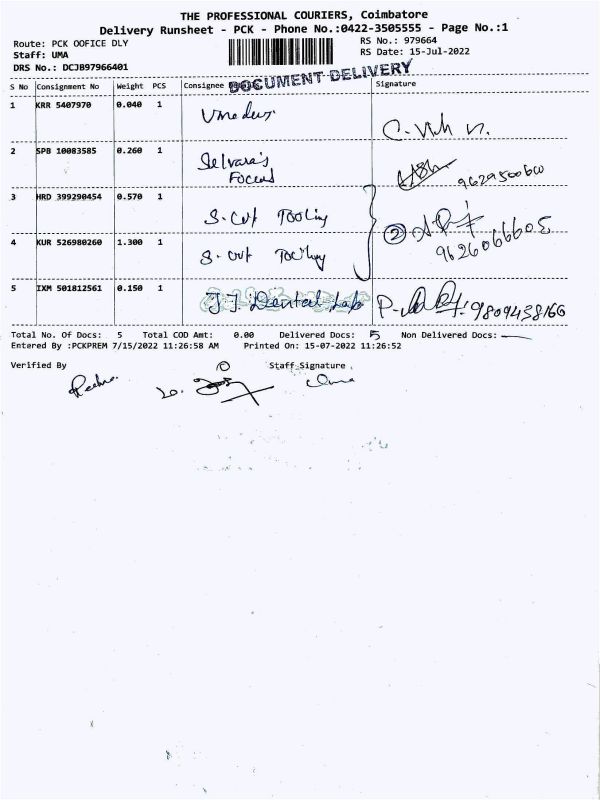 THE PROFESSIONAL COURIERS, Coimbatore
Delivery Runsheet - PCK - Phone No.:0422-3505555 - Page No.:1
Route: PCK OOFICE DLY RS No.: 979664
Staff: UMA RS Date: 15-Jul-2022
DRS No.: DCJB97966401
DOCUMENT DELIVERY
S No Consignment No Weight PCS Consignee Signature
1 KRR 5407970 0.040 1
2 SPB 10083585 0.260 1 Selvaraj's
Focus
3 HRD 399290454 0.570 1 S-Cut Tooling
4 KUR 526980260 1.300 1 S-Cut Tooling
②
5 IXM 501812561 0.150 1 J.J. Dental Lab 9809458166
Total No. Of Docs: 5 Total COD Amt: 0.00 Delivered Docs: 5 Non Delivered Docs:
Entered By :PCKPREM 7/15/2022 11:26:58 AM Printed On: 15-07-2022 11:26:52
Verified By Staff Signature